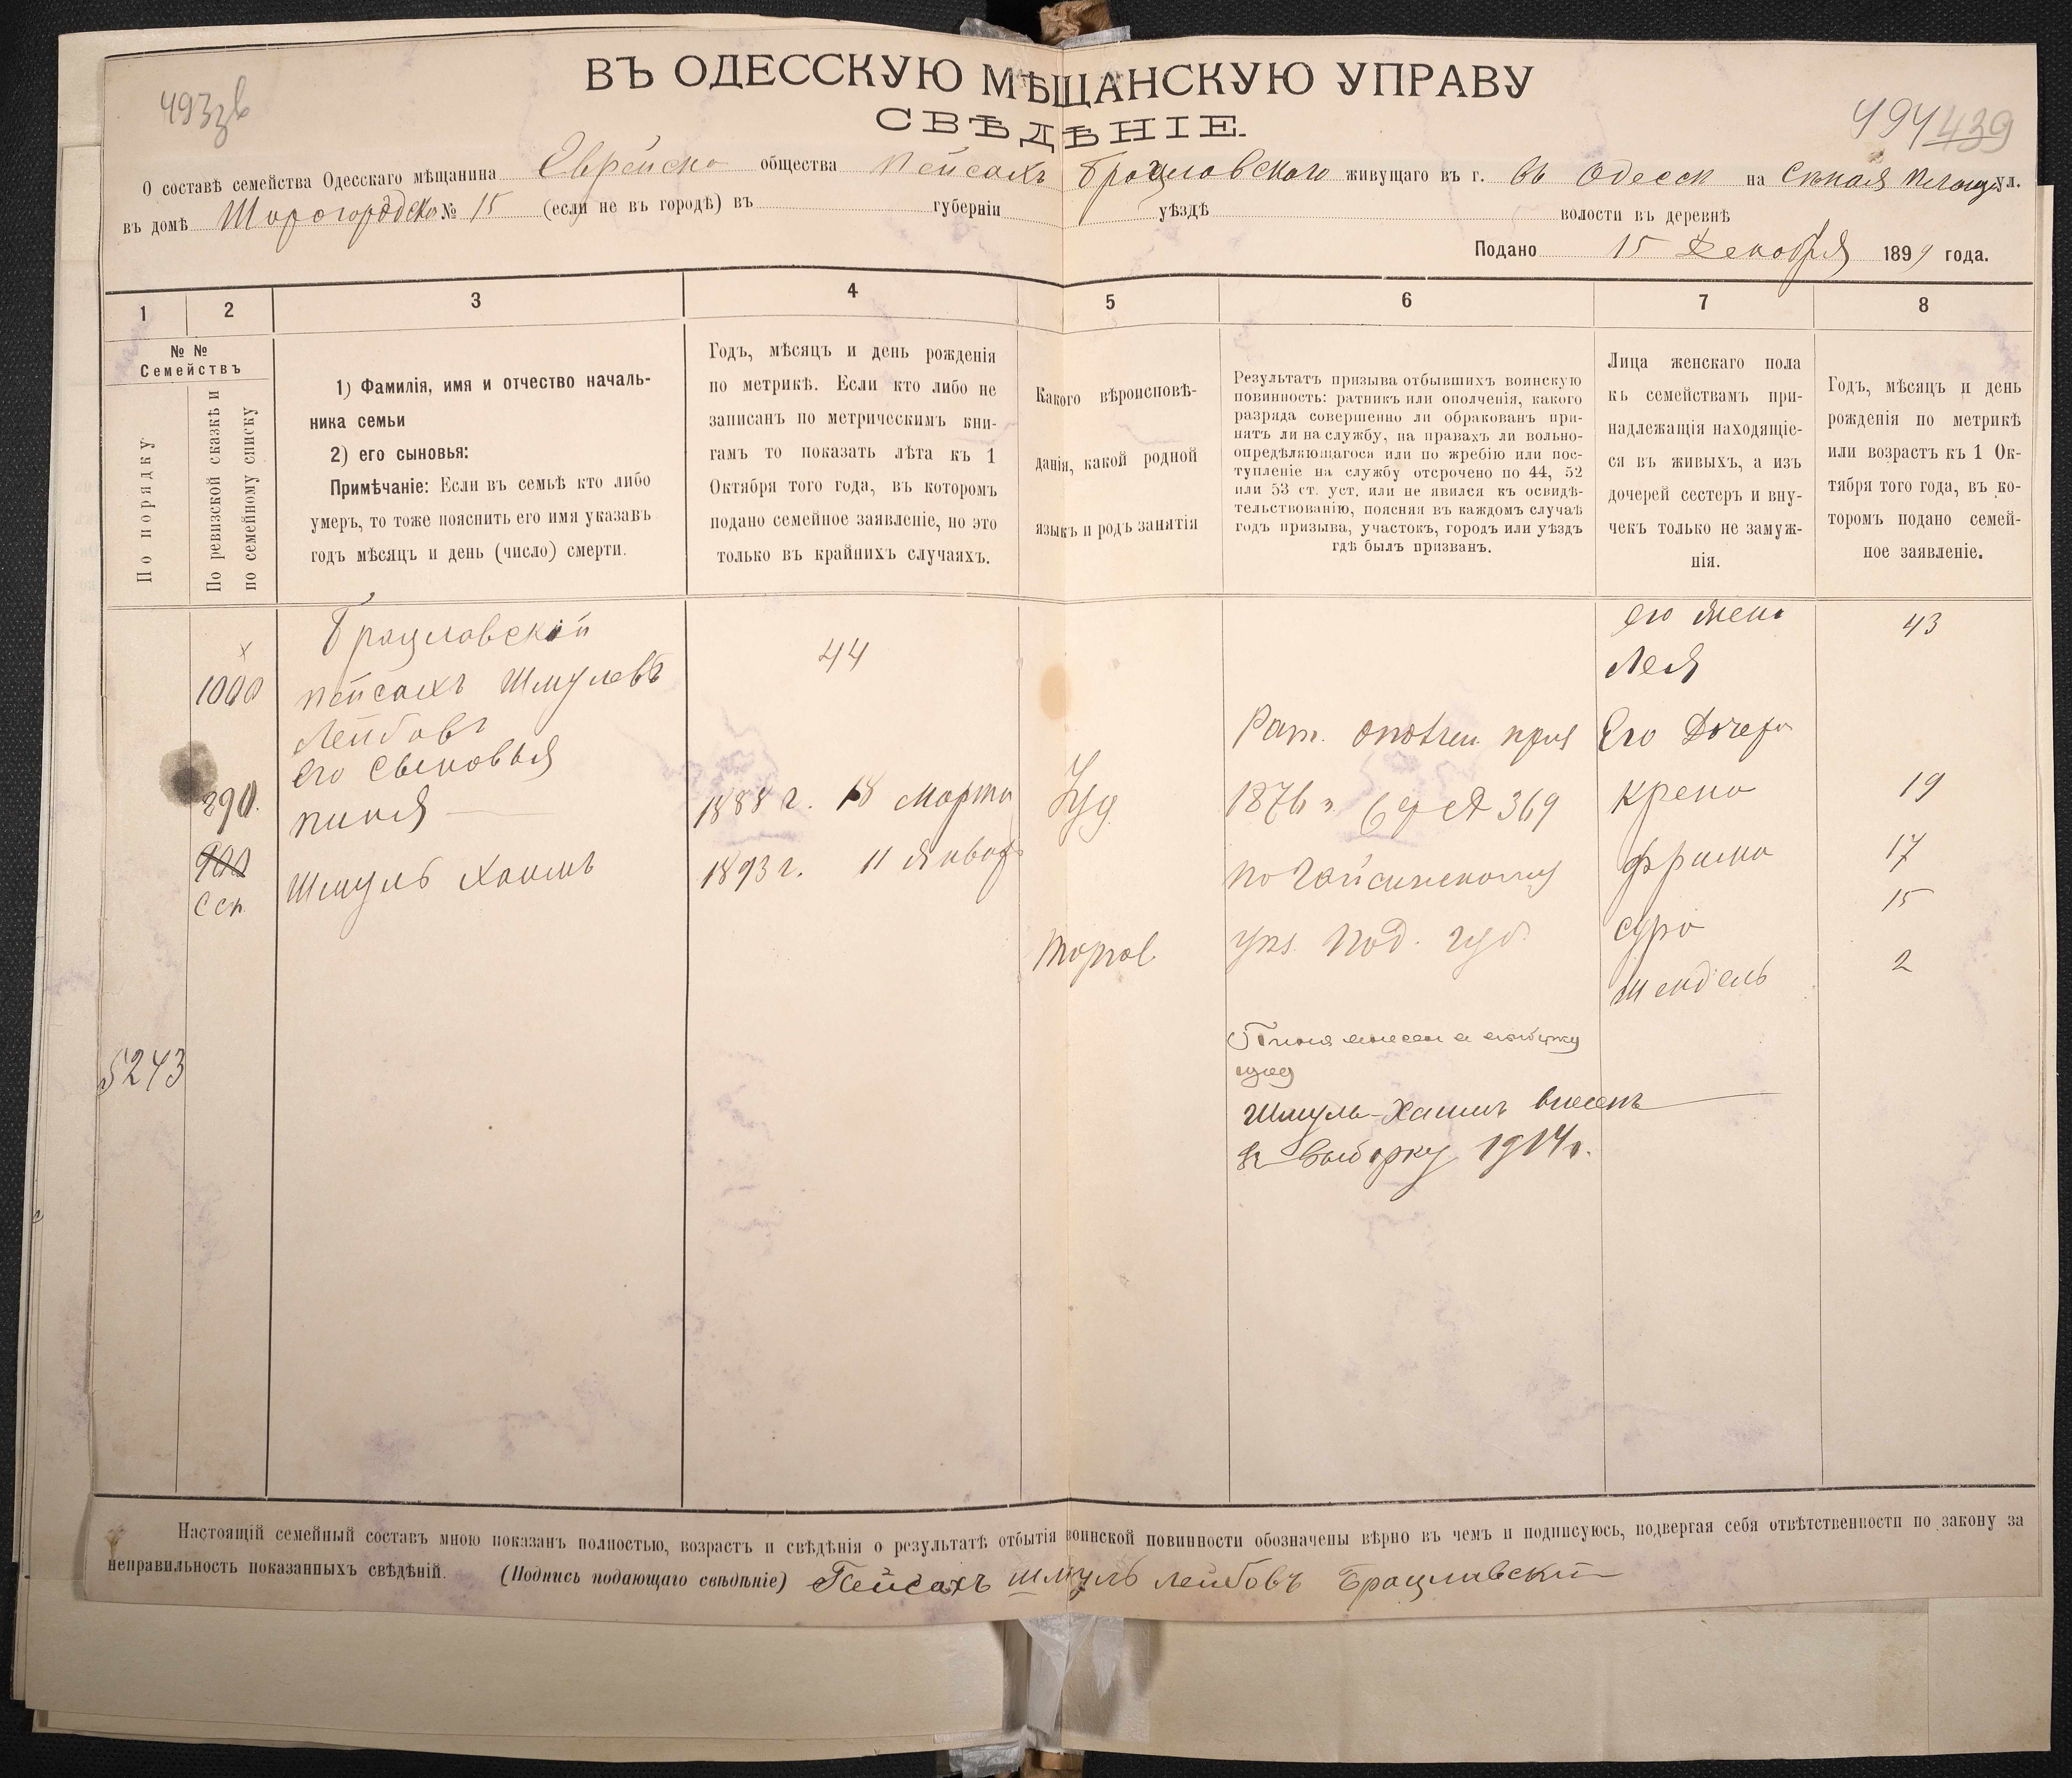 ВЪ ОДЕССКУЮ МѢЩАНСКУЮ УПРАВУ
СВѢДѢНІЕ.
494 439
О составѣ семейства Одесскаго мѣщанина Еврейско общества Пейсахъ Брацловскаго живущаго въ г. въ Одесск на Сѣнная площ ул.
въ домѣ № 15 (если не въ городѣ) въ губерніи уѣздѣ волости въ деревнѣ
Подано 15 Декабря 1899 года.
1 2 3 4 5 6 7 8
№ №
Семействъ
По порядку
По ревизской сказкѣ и
по семейному списку
1) Фамилія, имя и отчество началь-
ника семьи
2) его сыновья:
Примѣчаніе: Если въ семьѣ кто либо
умеръ, то тоже пояснить его имя указавъ
годъ мѣсяцъ и день (число) смерти.
Годъ, мѣсяцъ и день рожденія
по метрикѣ. Если кто либо не
записанъ по метрическимъ кни-
гамъ то показать лѣта къ 1
Октября того года, въ которомъ
подано семейное заявленіе, но это
только въ крайнихъ случаяхъ.
Какого вѣроисповѣ-
данія, какой родной
языкъ и родъ занятія
Результатъ призыва отбывшихъ воинскую
повинность: ратникъ или ополченія, какого
разряда совершенно ли обракованъ при-
нятъ ли на службу, на правахъ ли вольно-
опредѣляющагося или по жребію или пос-
тупленіе на службу отсрочено по 44, 52
или 53 ст. уст. или не явился къ освидѣ-
тельствованію, поясняя въ каждомъ случаѣ
годъ призыва, участокъ, городъ или уѣздъ
гдѣ былъ призванъ.
Лица женскаго пола
къ семействамъ при-
надлежащія находящіе-
ся въ живыхъ, а изъ
дочерей сестеръ и вну-
чекъ только не замуж-
нія.
Годъ, мѣсяцъ и день
рожденія по метрикѣ
или возрастъ къ 1 Ок-
тября того года, въ ко-
торомъ подано семей-
ное заявленіе.
Брацловскій
его жена 43
х
44
Лея
1000 Пейсахъ Шмулевъ
Лейбовъ
Рат. ополчен. приз Его Дочери
его сыновья
290. Пиня 1888 г. 18 Марта Іуд 1876 г 369 Крейна 19
900 Шмуль Хаимъ 1893 г. 11 Января по Гайсинскому Фрима 17
15
Торгов уѣз. Под. губ. Сура
Шендель 2
5243
Пиня внесен в выборку
Шмуль-Хаимъ внесенъ
въ выборку 1914 г.
Настоящій семейный составъ мною показанъ полностью, возрастъ и свѣдѣнія о результатѣ отбытія воинской повинности обозначены вѣрно въ чемъ и подписуюсь, подвергая себя отвѣтственности по закону за
неправильность показанныхъ свѣдѣній. (Подпись подающаго свѣдѣніе) Пейсахъ Шмуль Лейбовъ Брацлавскій